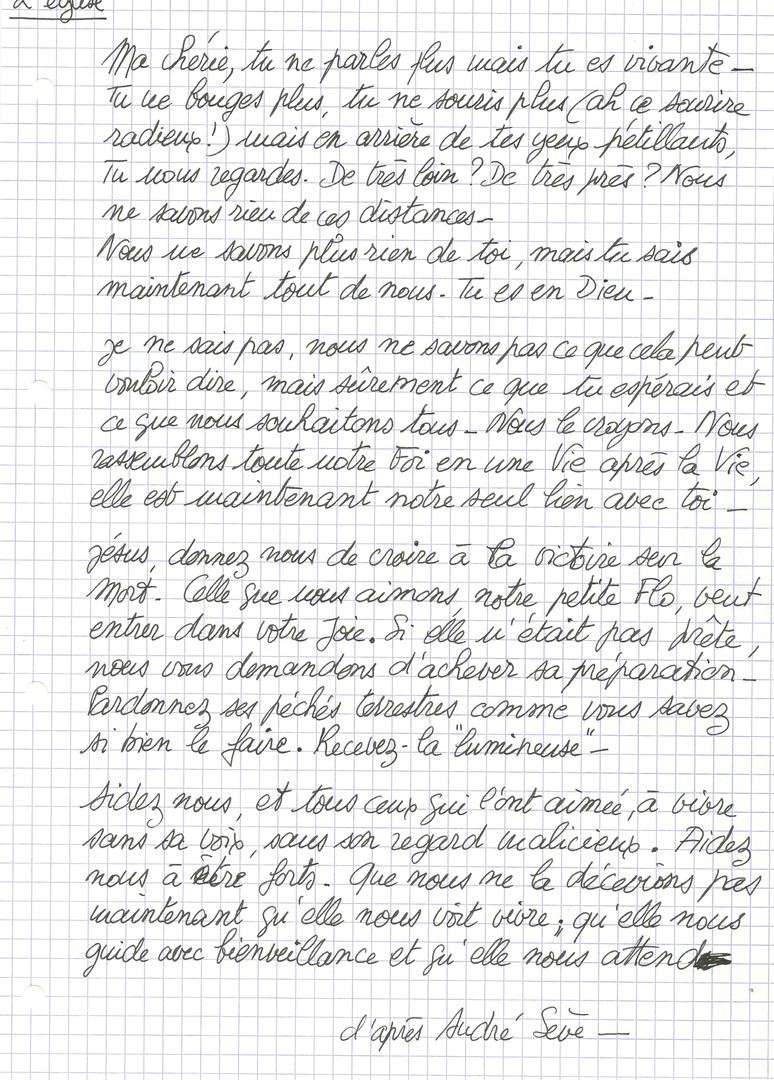 à l'église
Ma chérie, tu ne parles plus mais tu es vivante -
Tu ne bouges plus, tu ne souris plus (ah ce sourire
radieux!) mais en arrière de tes yeux pétillants,
Tu nous regardes. De très loin ? De très près ? Nous
ne savons rien de ces distances -
Nous ne savons plus rien de toi, mais tu sais
maintenant tout de nous. Tu es en Dieu -
Je ne sais pas, nous ne savons pas ce que cela peut
vouloir dire, mais sûrement ce que tu espérais et
ce que nous souhaitons tous - Nous le croyons - Nous
rassemblons toute notre Foi en une Vie après la Vie,
elle est maintenant notre seul lien avec toi -
Jésus, donnez nous de croire à la victoire sur la
Mort. Celle que nous aimons, notre petite Flo, veut
entrer dans votre Joie. Si elle n'était pas prête,
nous vous demandons d'achever sa préparation -
Pardonnez ses péchés terrestres comme vous savez
si bien le faire. Recevez-la "lumineuse" -
Aidez nous, et tous ceux qui l'ont aimée, à vivre
sans sa voix, sans son regard malicieux. Aidez
nous à être forts. Que nous ne la décevions pas
maintenant qu'elle nous voit vivre ; qu'elle nous
guide avec bienveillance et qu'elle nous attend
d'après André Sève -